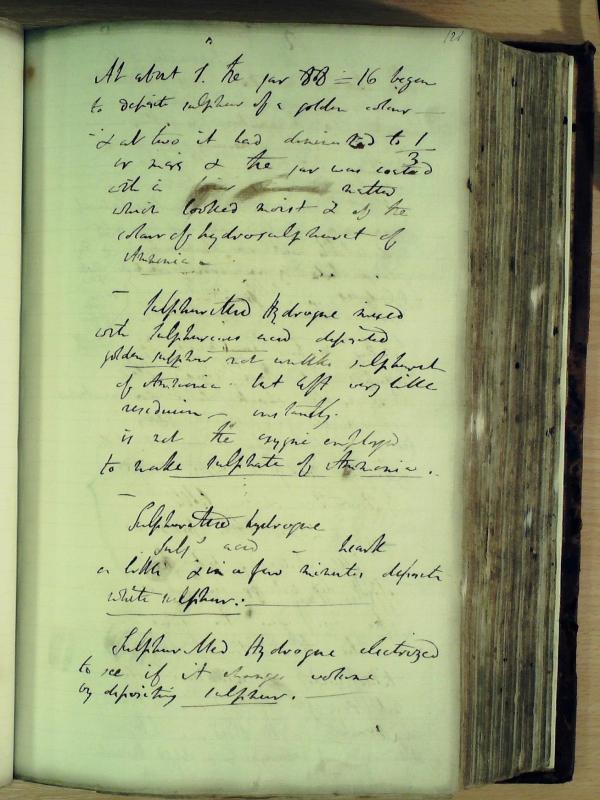 121
At about 1. the jar = 16 began
to deposite sulphur of a golden colour —
& at two it had diminished to 1/3
or more & the jar was coated
with a matter
which looked moist & of the
colour of hydrosulphuret of
Ammonia –
Sulphuretted Hydrogene mixed
with Sulphureous acid deposited
golden sulphur not unlike sulphuret
of Ammonia. but left very little
residuum – constantly.
is not the oxygene employed
to make sulphate of Ammonia.
Sulphuretted hydrogene
Sulps acid –
a little & in a few minutes deposits
white sulphur: —
Sulphuretted Hydrogene electrized
to see if it changes volume
by depositing sulphur. —